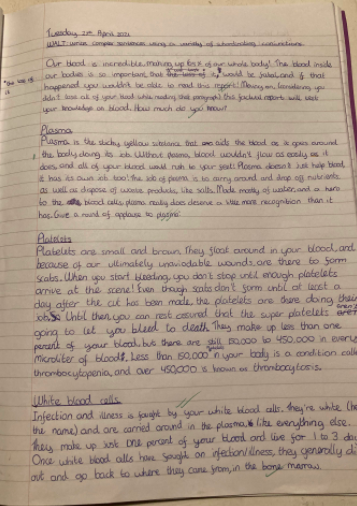 Tuesday 2nd April 2021
WALT: write complex sentences using a variety of subordinating conjunctions.
Our blood is incredible, making up of our whole body! The blood inside
our bodies is so important, that the loss of it would be fatal and if that
happened you wouldn't be able to read this report! Moving on, (considering you
didn't lose all of your blood while reading that paragraph) this factual report will test
your knowledge on blood. How much do you know?
Plasma
Plasma is the sticky yellow substance that aids the blood as it goes around
the body doing its job. Without plasma, blood wouldn't flow as easily as it
does and all of your blood would rush to your feet! Plasma doesn't just help blood
it has its own job too! The job of plasma is to carry around and drop off nutrients
as well as dispose of waste products, like salts. Made mostly of water, and a hero
to the blood cells, plasma really does deserve a little more recognition than it
has. Give a round of applause to plasma!
Platelets
Platelets are small and brown. They float around in your blood, and
because of our ultimately unavoidable wounds, are there to form
scabs. When you start bleeding, you don't stop until enough platelets
arrive at the scene! Even though scabs don't form until at least a
day after the cut has been made, the platelets are there doing their
job. Until then, you can rest assured that the super platelets aren't
going to let you bleed to death. They make up less than one
percent of your blood, but there are still 150,000 to 450,000 in every
microliter of blood! Less than 150,000 in your body is a condition called
thrombocytopenia, and over 450,000 is known as thrombocytosis.
White blood cells
Infection and illness is fought by your white blood cells. They're white (hence
the name) and are carried around in the plasma, like everything else.
They make up just one percent of your blood and live for 1 to 3 days.
Once white blood cells have fought an infection/illness, they generally die
out and go back to where they came from, in the bone marrow.